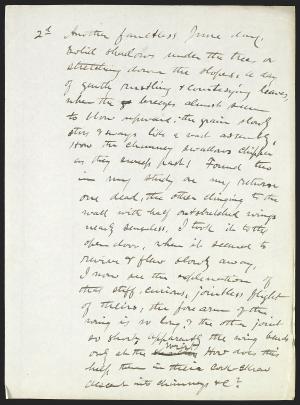 2d Another faultless June day,
solid shadows under the trees, or
stretching down the slopes. A day
of gentle rustling & courtesying leaves,
when the breezes almost seem
to blow upward; the grain slowly
stirs & sways like a vast assembly,
How the chimney swallows chipper
as they sweep past! Found two
in my study on my return
one dead, the other clinging to the
wall with half outstretched wings
nearly senseless, I took it to the
open door, when it seemed to
revive & flew slowly away,
I now see the explanation of
that stiff, curious, jointless flight
of theirs; the forearm of the
wing is so long? the other joint
so short; apparently the wing bends
only at the wrist. How does this
help them in their cork-screw
descent into chimneys &c?